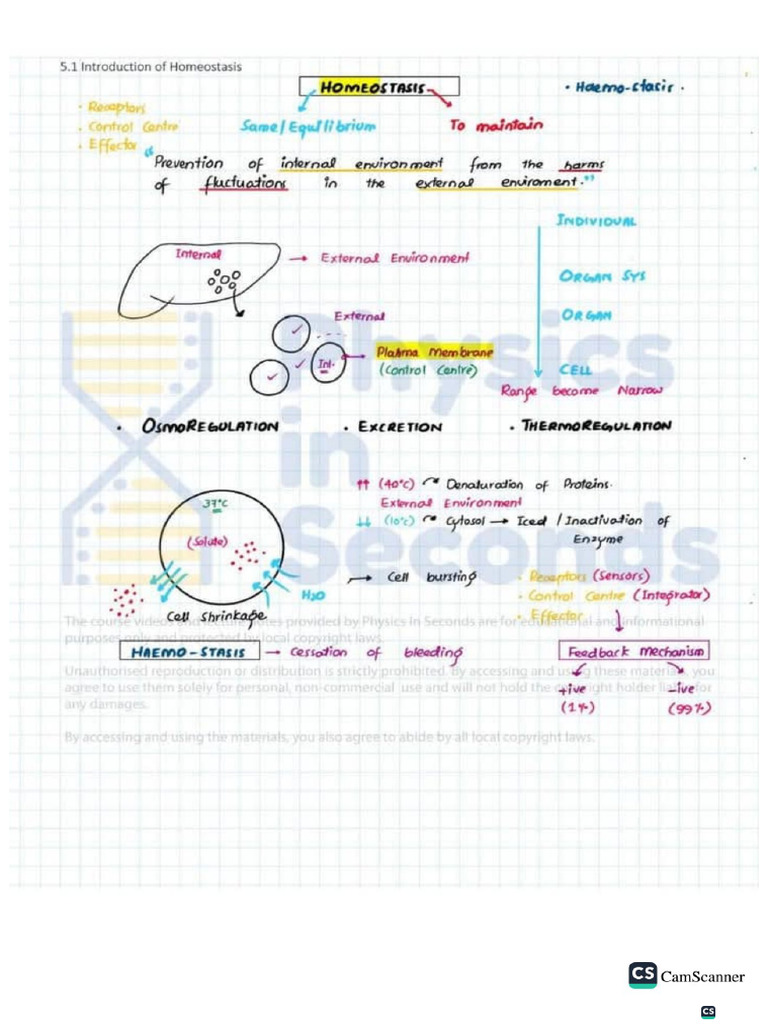 5.1 Introduction of Homeostasis
HOMEOSTASIS
• Haemo-stasis •
• Receptors
• Control Centre
• Effector
Same/Equilibrium
To maintain
“Prevention of internal environment from the harms
of fluctuations in the external enviroment.”
INDIVIDUAL
ORGAN SYS
ORGAN
CELL
Range become Narrow
Internal
→ External Environment
External
Int.
Plasma Membrane
(Control Centre)
• OSMOREGULATION • EXCRETION • THERMOREGULATION
37°C
(Solute)
H2O
Cell Shrinkage
↑↑ (40°C) Denaturation of Proteins.
External Environment
↓↓ (10°C) Cytosol → Iced / Inactivation of
Enzyme
→ Cell bursting
• Receptors (Sensors)
• Control Centre (Integrator)
• Effector
Feedback mechanism
+ive
(1%)
-ive
(99%)
HAEMO-STASIS → Cessation of bleeding
Physics
in
Seconds
The course videos provided by Physics In Seconds are for educational and informational
purposes only and protected by local copyright laws.
Unauthorised reproduction or distribution is strictly prohibited. By accessing and using these materials, you
agree to use them solely for personal, non-commercial use and will not hold the copyright holder liable for
any damages.
By accessing and using the materials, you also agree to abide by all local copyright laws.
CS CamScanner
CS